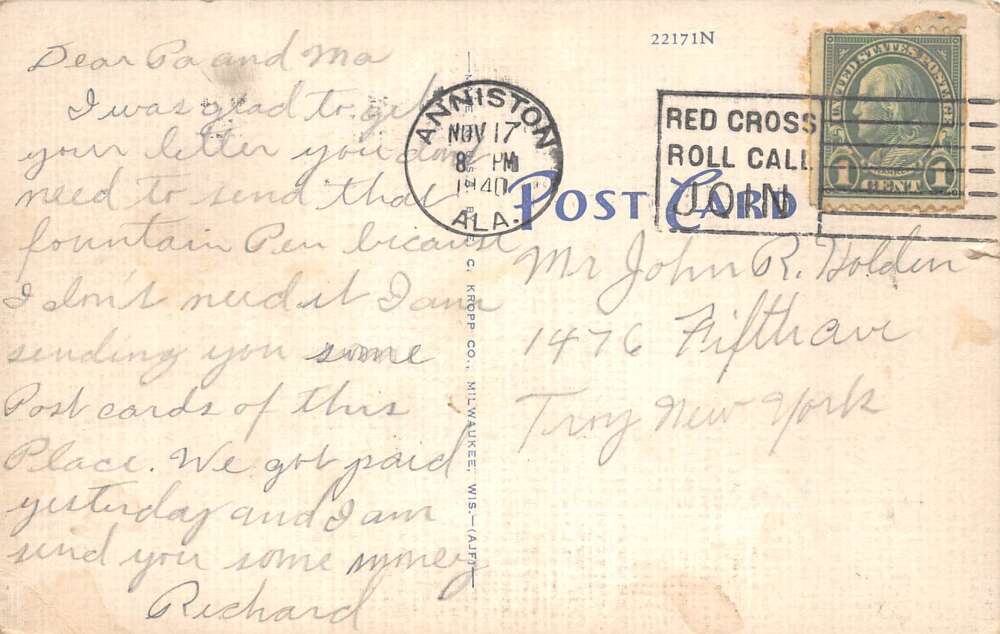 Dear Pa and Ma
I was glad to get
your letter you dont
need to send that
fountain Pen because
I don't need it I am
sending you some
Post cards of this
Place. We got paid
yesterday and I am
send you some money
Richard
22171N
ANNISTON
NOV 17
8 PM
1940
ALA.
RED CROSS
ROLL CALL
JOIN
UNITED STATES POSTAGE
1 CENT 1
POST CARD
Mr John R. Holden
1476 Fifth ave
Troy New York
E. C. KROPP CO., MILWAUKEE, WIS.—(AJF)